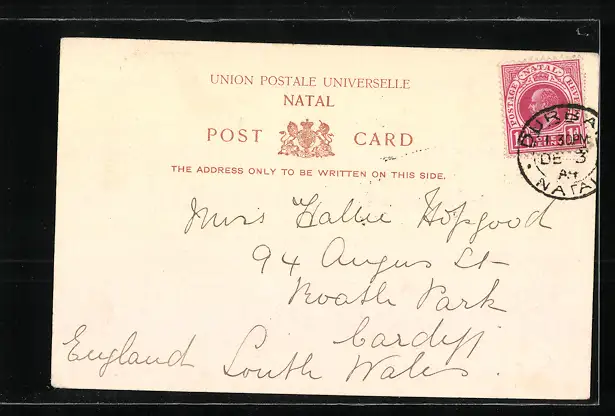 UNION POSTALE UNIVERSELLE
NATAL
POST CARD
THE ADDRESS ONLY TO BE WRITTEN ON THIS SIDE.
POSTAGE NATAL REVENUE
DURBAN
11.30PM
DE 3
NATAL
Miss Hallie Hopgood
94 Angus St
Roath Park
Cardiff
England South Wales.